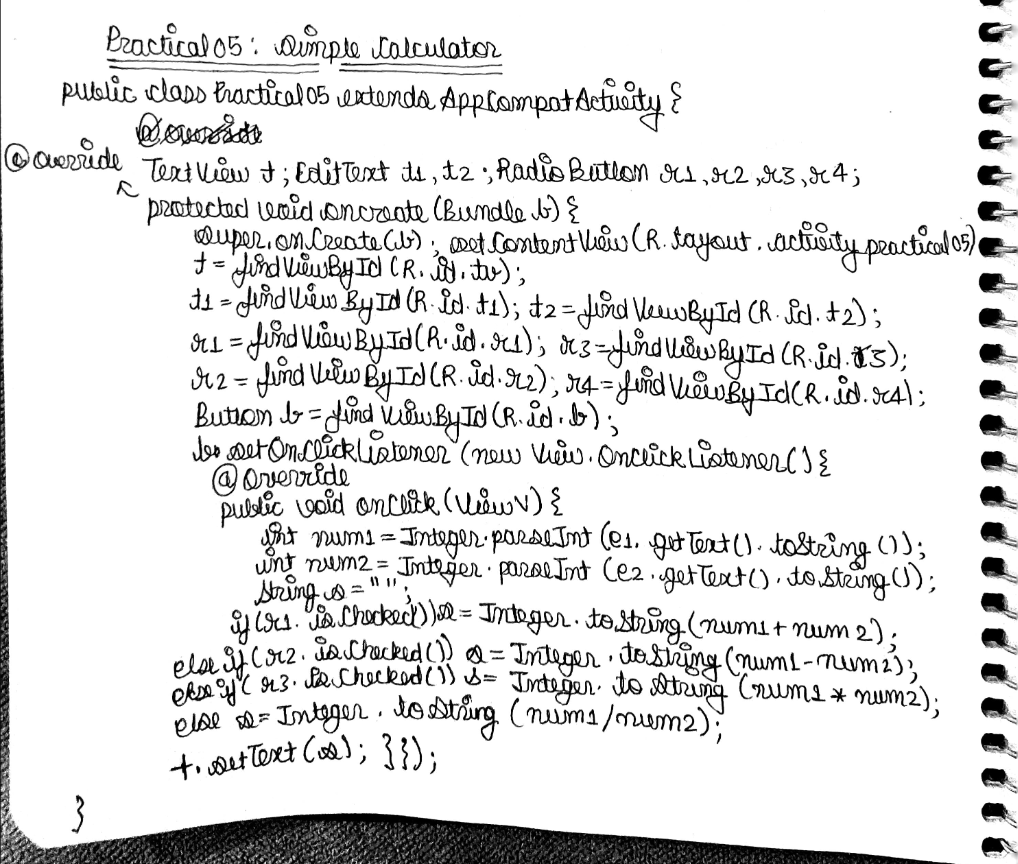 Practical 05: Simple Calculator
public class Practical 05 extends AppCompatActivity {
@Override
@Override TextView t; EditText t1, t2; RadioButton r1, r2, r3, r4;
protected void oncreate (Bundle b) {
super.onCreate(b); setContentView (R.layout.activity practical 05)
t = findViewById (R.id.tv);
t1 = findViewById (R.id.t1); t2 = findViewById (R.id.t2);
r1 = findViewById (R.id.r1); r3 = findViewById (R.id.r3);
r2 = findViewById (R.id.r2); r4 = findViewById (R.id.r4);
Button b = findViewById (R.id.b);
b.setOnClickListener (new View.OnClickListener() {
@Override
public void onClick (View v) {
int num1 = Integer.parseInt (e1.getText().toString());
int num2 = Integer.parseInt (e2.getText().toString());
String s = "";
if (r1.isChecked()) s = Integer.toString (num1 + num2);
else if (r2.isChecked()) s = Integer.toString (num1 - num2);
else if (r3.isChecked()) s = Integer.toString (num1 * num2);
else s = Integer.toString (num1/num2);
t.setText (s); }});
}